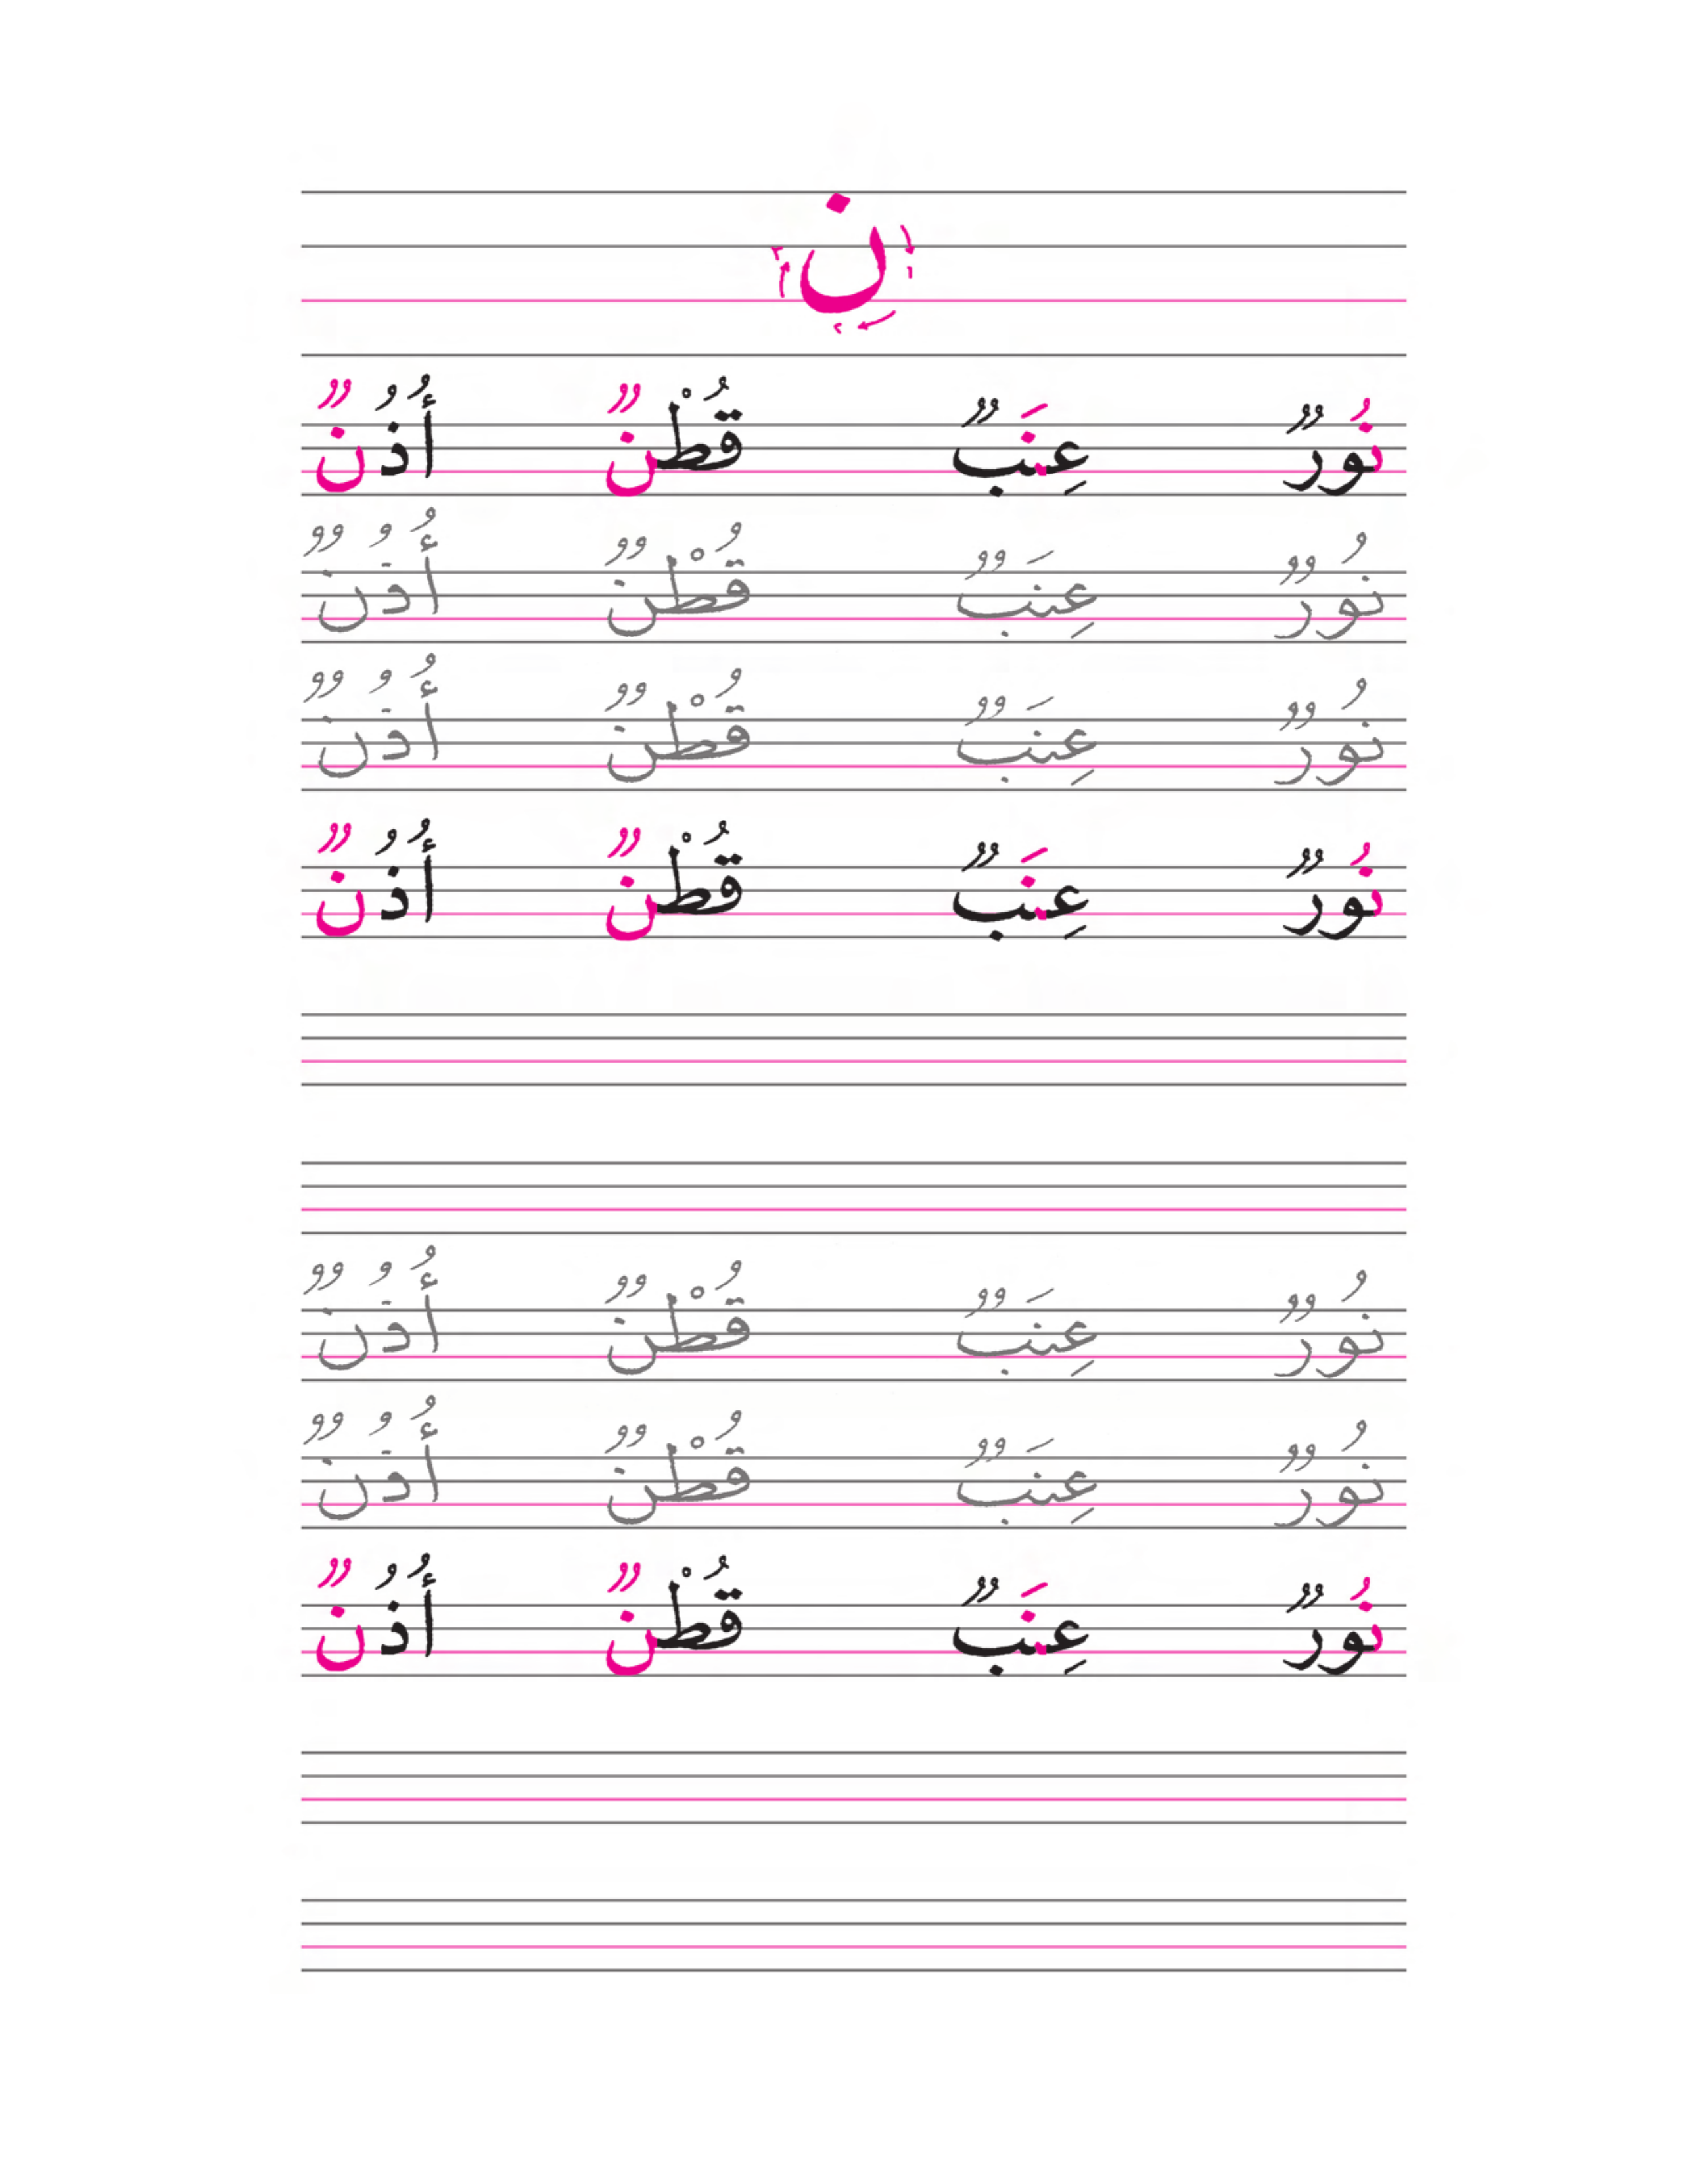 ن
نُورٌ عِنَبٌ قُطْنٌ أُذُنٌ
نُورٌ عِنَبٌ قُطْنٌ أُذُنٌ
نُورٌ عِنَبٌ قُطْنٌ أُذُنٌ
نُورٌ عِنَبٌ قُطْنٌ أُذُنٌ
نُورٌ عِنَبٌ قُطْنٌ أُذُنٌ
نُورٌ عِنَبٌ قُطْنٌ أُذُنٌ
نُورٌ عِنَبٌ قُطْنٌ أُذُنٌ